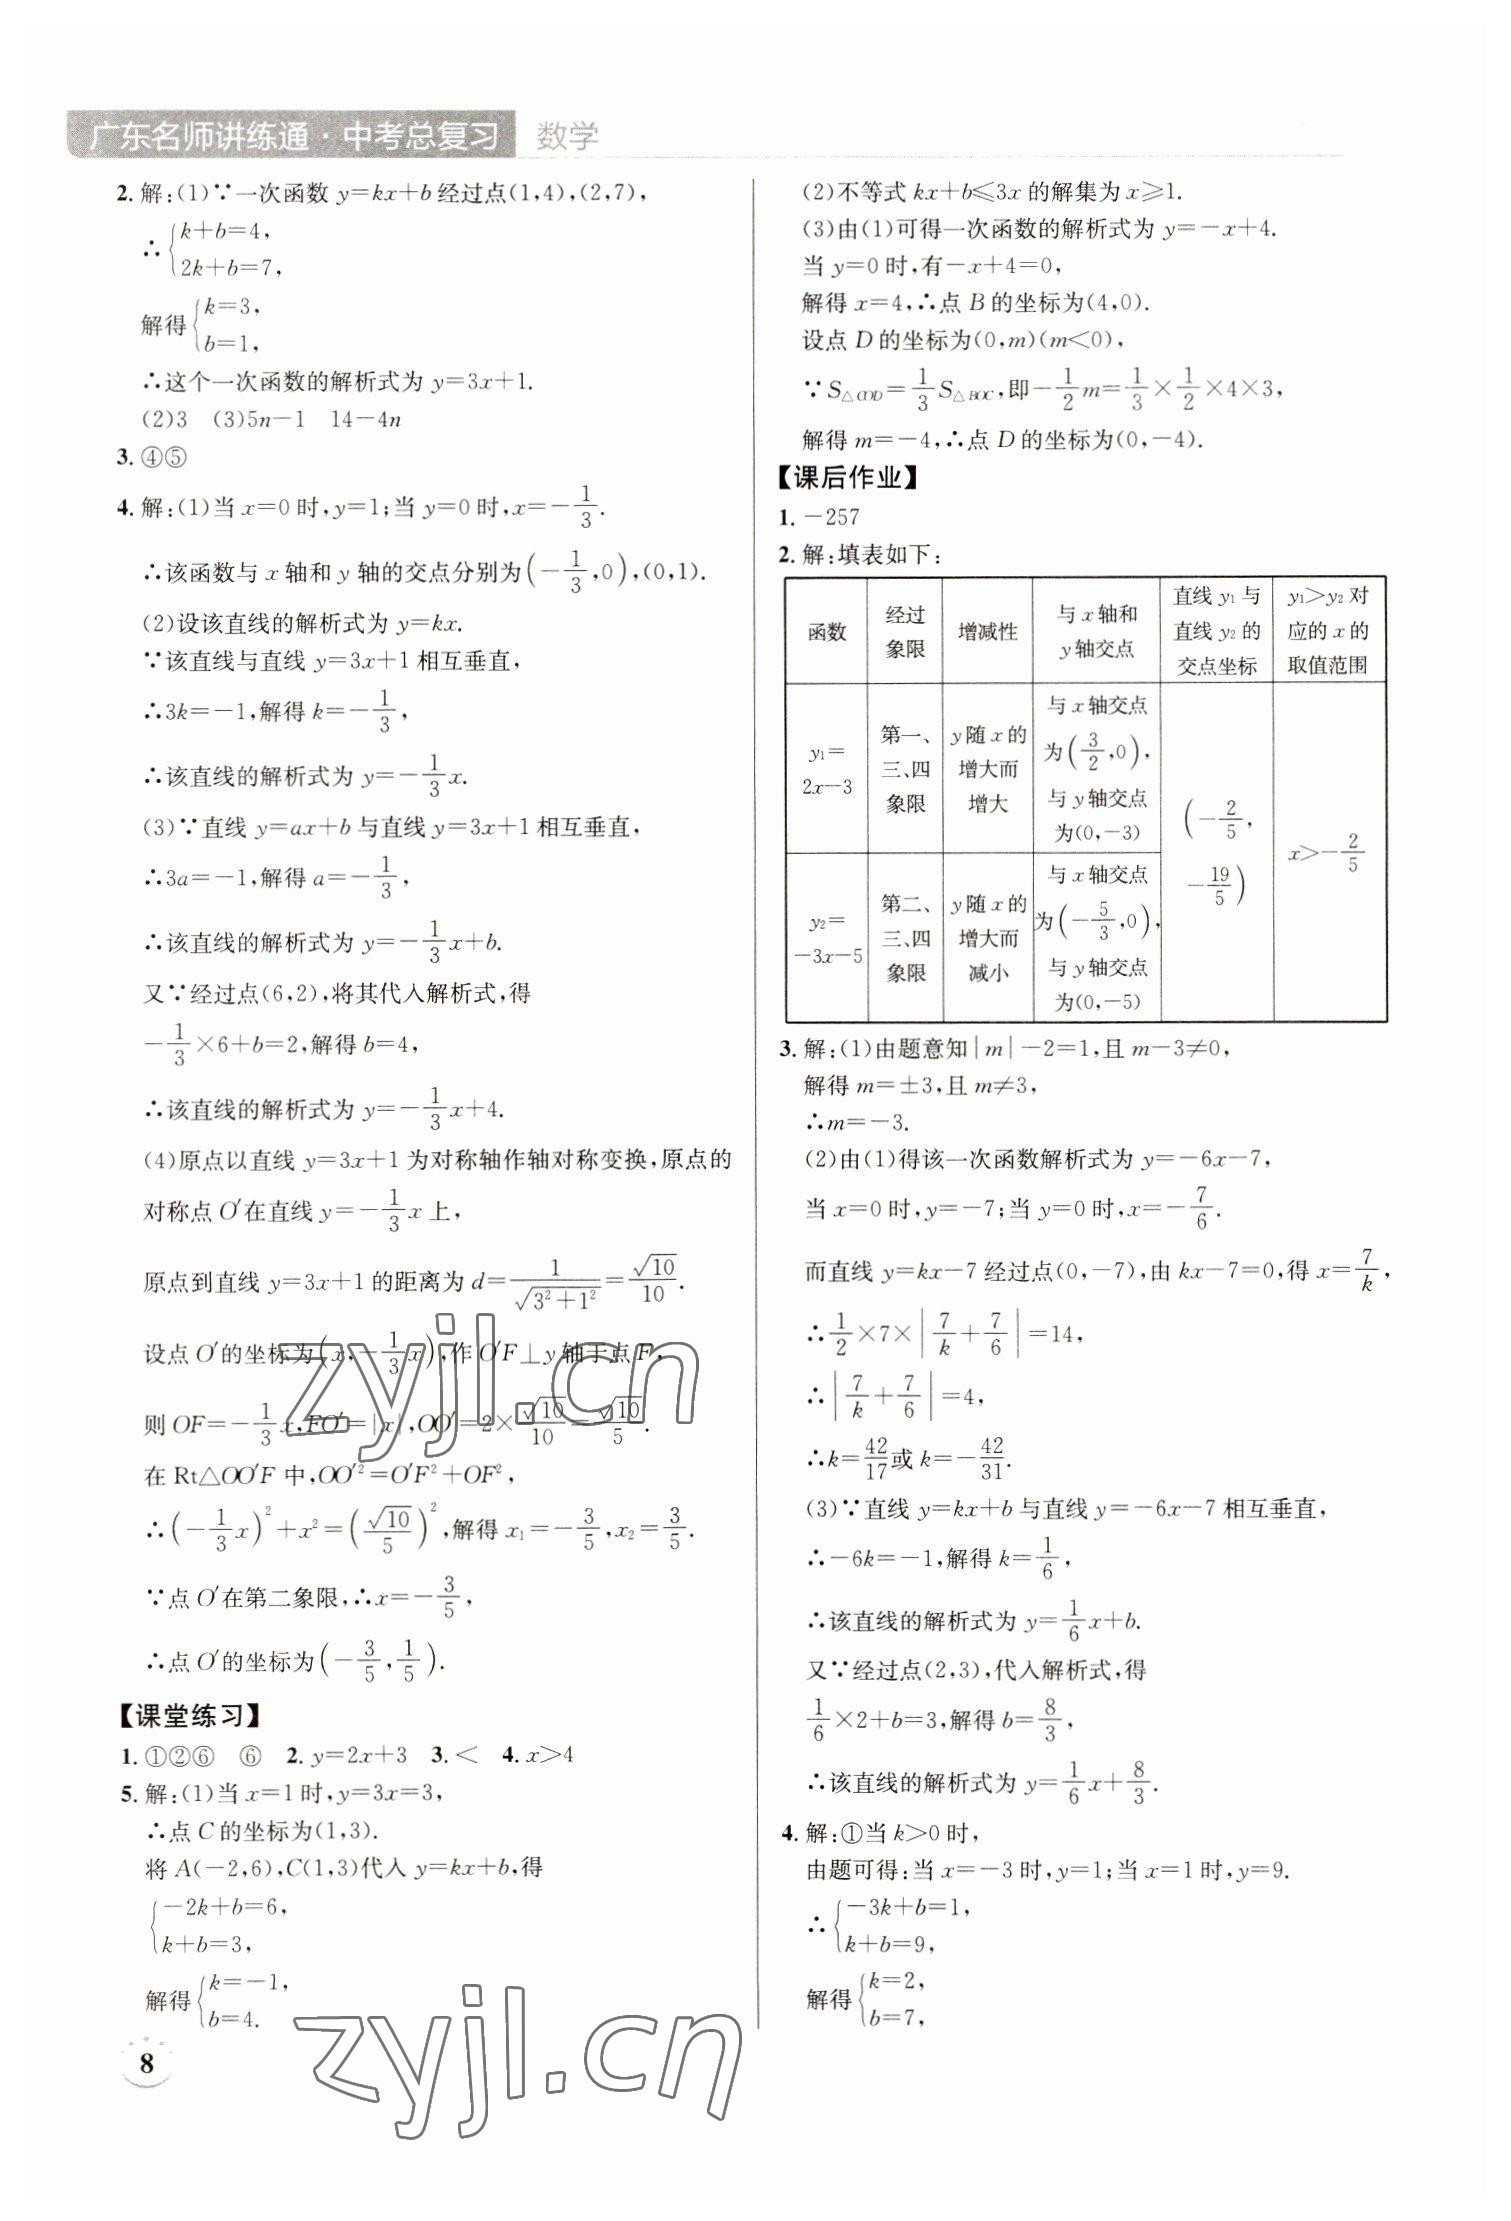 广东名师讲练通·中考总复习 数学
2. 解:(1)∵一次函数 y=kx+b 经过点(1,4),(2,7),
∴{k+b=4,
2k+b=7,
解得{k=3,
b=1,
∴这个一次函数的解析式为 y=3x+1.
(2)3 (3)5n-1 14-4n
3. ④⑤
4. 解:(1)当 x=0 时,y=1;当 y=0 时,x=-1/3.
∴该函数与 x 轴和 y 轴的交点分别为(-1/3,0),(0,1).
(2)设该直线的解析式为 y=kx.
∵该直线与直线 y=3x+1 相互垂直,
∴3k=-1,解得 k=-1/3,
∴该直线的解析式为 y=-1/3x.
(3)∵直线 y=ax+b 与直线 y=3x+1 相互垂直,
∴3a=-1,解得 a=-1/3,
∴该直线的解析式为 y=-1/3x+b.
又∵经过点(6,2),将其代入解析式,得
-1/3×6+b=2,解得 b=4,
∴该直线的解析式为 y=-1/3x+4.
(4)原点以直线 y=3x+1 为对称轴作轴对称变换,原点的
对称点 O′在直线 y=-1/3x 上,
原点到直线 y=3x+1 的距离为 d=1/√(3²+1²)=√10/10.
设点 O′的坐标为(x,-1/3x),作 O′F⊥y 轴于点 F,
则 OF=-1/3x,FO′=|x|,OO′=2×√10/10=√10/5.
在 Rt△OO′F 中,OO′²=O′F²+OF²,
∴(-1/3x)²+x²=(√10/5)²,解得 x₁=-3/5,x₂=3/5.
∵点 O′在第二象限,∴x=-3/5,
∴点 O′的坐标为(-3/5,1/5).
【课堂练习】
1. ①②⑥ ⑥ 2. y=2x+3 3. < 4. x>4
5. 解:(1)当 x=1 时,y=3x=3,
∴点 C 的坐标为(1,3).
将 A(-2,6),C(1,3)代入 y=kx+b,得
{-2k+b=6,
k+b=3,
解得{k=-1,
b=4.
8
(2)不等式 kx+b≤3x 的解集为 x≥1.
(3)由(1)可得一次函数的解析式为 y=-x+4.
当 y=0 时,有-x+4=0,
解得 x=4,∴点 B 的坐标为(4,0).
设点 D 的坐标为(0,m)(m<0),
∵S△COD=1/3S△BOC,即-1/2m=1/3×1/2×4×3,
解得 m=-4,∴点 D 的坐标为(0,-4).
【课后作业】
1. -257
2. 解:填表如下:
函数 经过象限 增减性 与 x 轴和 y 轴交点 直线 y₁ 与直线 y₂ 的交点坐标 y₁>y₂ 对应的 x 的取值范围
y₁=2x-3 第一、三、四象限 y 随 x 的增大而增大 与 x 轴交点为(3/2,0),与 y 轴交点为(0,-3) (-2/5,-19/5) x>-2/5
y₂=-3x-5 第二、三、四象限 y 随 x 的增大而减小 与 x 轴交点为(-5/3,0),与 y 轴交点为(0,-5)
3. 解:(1)由题意知|m|-2=1,且 m-3≠0,
解得 m=±3,且 m≠3,
∴m=-3.
(2)由(1)得该一次函数解析式为 y=-6x-7,
当 x=0 时,y=-7;当 y=0 时,x=-7/6.
而直线 y=kx-7 经过点(0,-7),由 kx-7=0,得 x=7/k,
∴1/2×7×|7/k+7/6|=14,
∴|7/k+7/6|=4,
∴k=42/17或 k=-42/31.
(3)∵直线 y=kx+b 与直线 y=-6x-7 相互垂直,
∴-6k=-1,解得 k=1/6,
∴该直线的解析式为 y=1/6x+b.
又∵经过点(2,3),代入解析式,得
1/6×2+b=3,解得 b=8/3,
∴该直线的解析式为 y=1/6x+8/3.
4. 解:①当 k>0 时,
由题可得:当 x=-3 时,y=1;当 x=1 时,y=9.
∴{-3k+b=1,
k+b=9,
解得{k=2,
b=7,
zyjl.cn
zyjl.cn